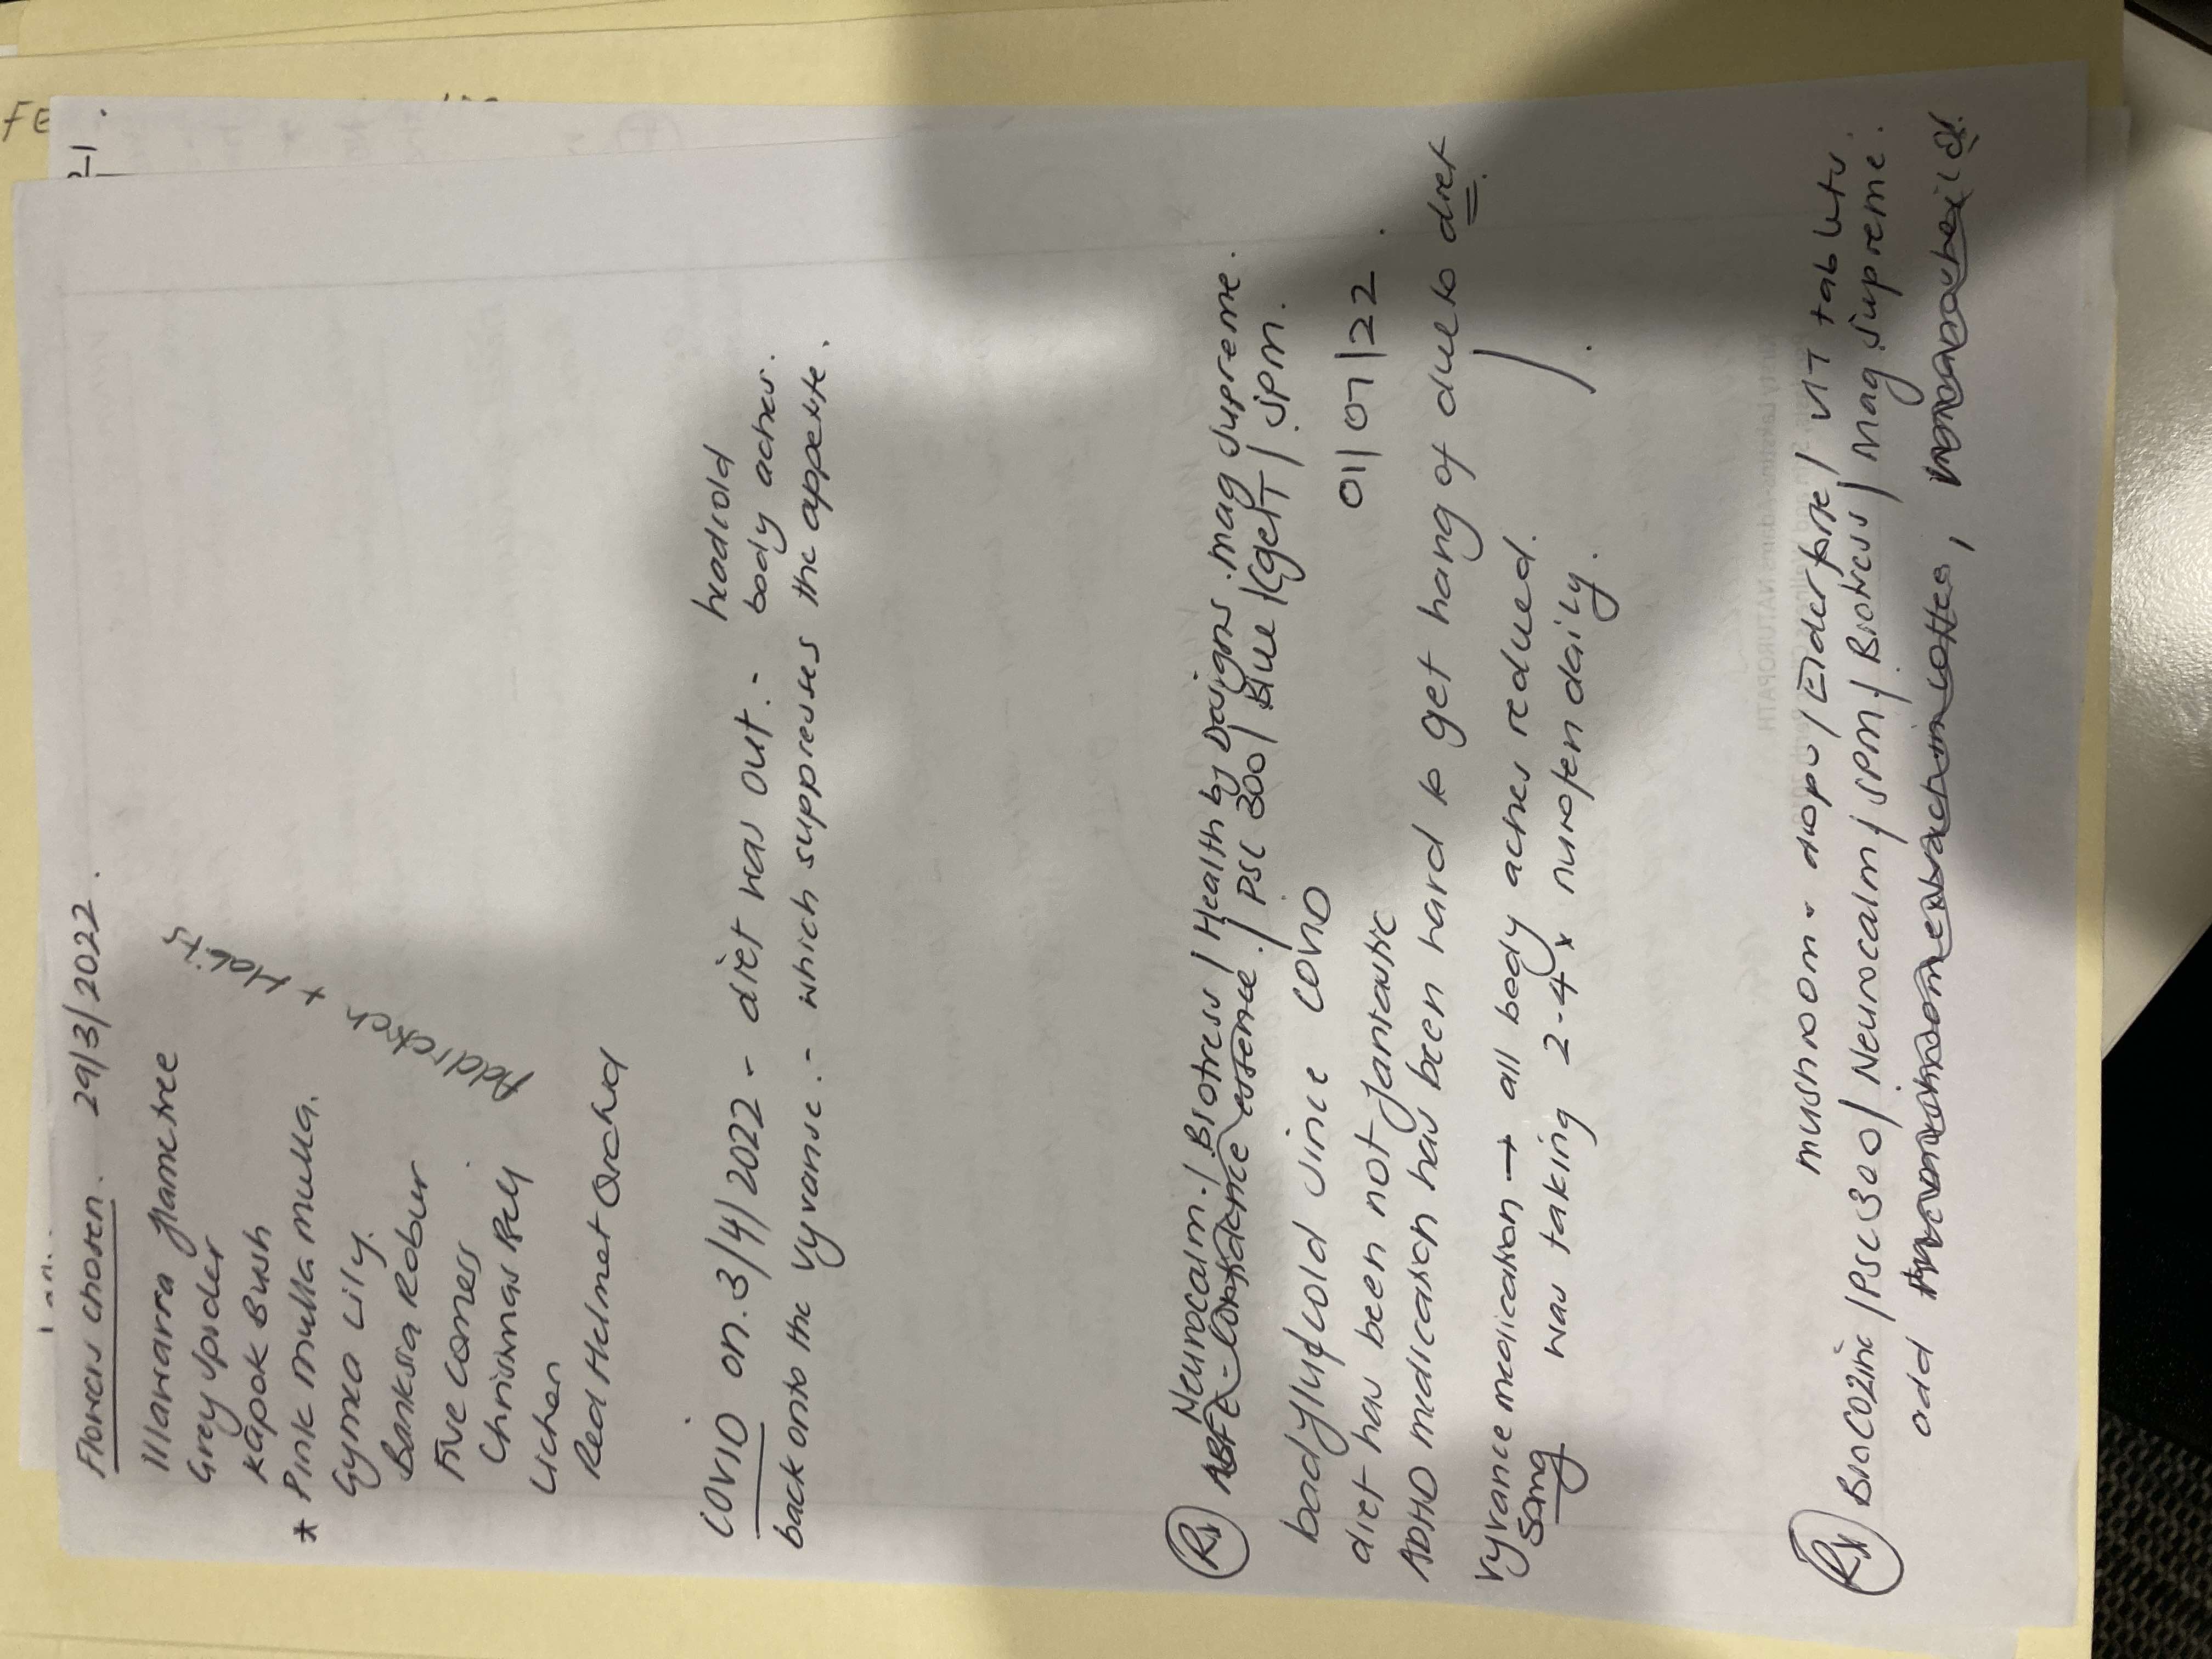 FE
Flowers chosen. 29/3/2022.
Illawarra flametree
Grey spider
Kapok Bush
* Pink mulla mulla.
Gymea Lily.
Banksia Robur
Five Corners
Christmas Bell
Lichen
Red Helmet Orchid
Addiction
+
Habits
COVID on 3/4/2022 - diet was out. - headcold
body aches.
back onto the vyvanse. - which suppresses the appetite.
Rx Neurocalm. / Biotress / Health by Designs. mag supreme.
ABFE - Confidence essence. / PSC 300 / Blue / SPM.
01/07/22.
bodyflufcold since COVID
diet has been not fantastic
ADHD medication has been hard to get hang of due to diet.
vyvance medication → all body aches reduced.
50mg was taking 2-4 x nurofen daily.
mushroom - drops / Elderforte / VIT tablets.
Rx BIOCOZinc / PSC 300 / Neurocalm / SPM / Biotress / Mag Supreme.
add
NATUROPATH